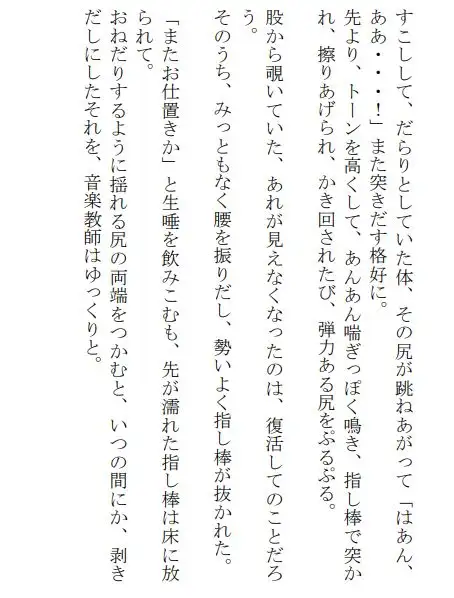 すこしして、だらりとしていた体、その尻が跳ねあがって「はあん、
ああ・・・！」また突きだす格好に。
先より、トーンを高くして、あんあん喘ぎっぽく鳴き、指し棒で突か
れ、擦りあげられ、かき回されたび、弾力ある尻をぷるぷる。
股から覗いていた、あれが見えなくなったのは、復活してのことだろ
う。
そのうち、みっともなく腰を振りだし、勢いよく指し棒が抜かれた。
「またお仕置きか」と生唾を飲みこむも、先が濡れた指し棒は床に放
られて。
おねだりするように揺れる尻の両端をつかむと、いつの間にか、剥き
だしにしたそれを、音楽教師はゆっくりと。